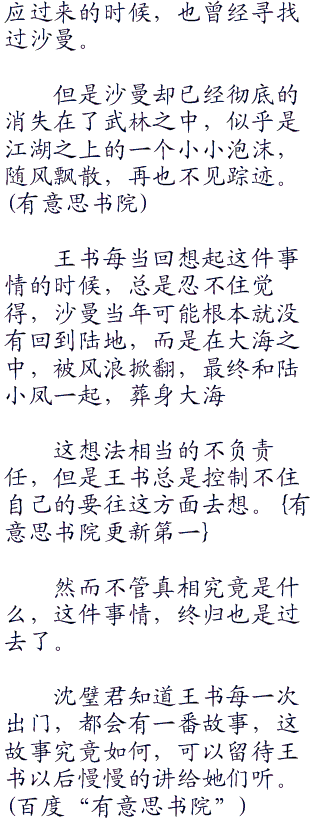 应过来的时候，也曾经寻找
过沙曼。
但是沙曼却已经彻底的
消失在了武林之中，似乎是
江湖之上的一个小小泡沫，
随风飘散，再也不见踪迹。
(有意思书院)
王书每当回想起这件事
情的时候，总是忍不住觉
得，沙曼当年可能根本就没
有回到陆地，而是在大海之
中，被风浪掀翻，最终和陆
小凤一起，葬身大海
这想法相当的不负责
任，但是王书总是控制不住
自己的要往这方面去想。{有
意思书院更新第一}
然而不管真相究竟是什
么，这件事情，终归也是过
去了。
沈璧君知道王书每一次
出门，都会有一番故事，这
故事究竟如何，可以留待王
书以后慢慢的讲给她们听。
(百度“有意思书院”)